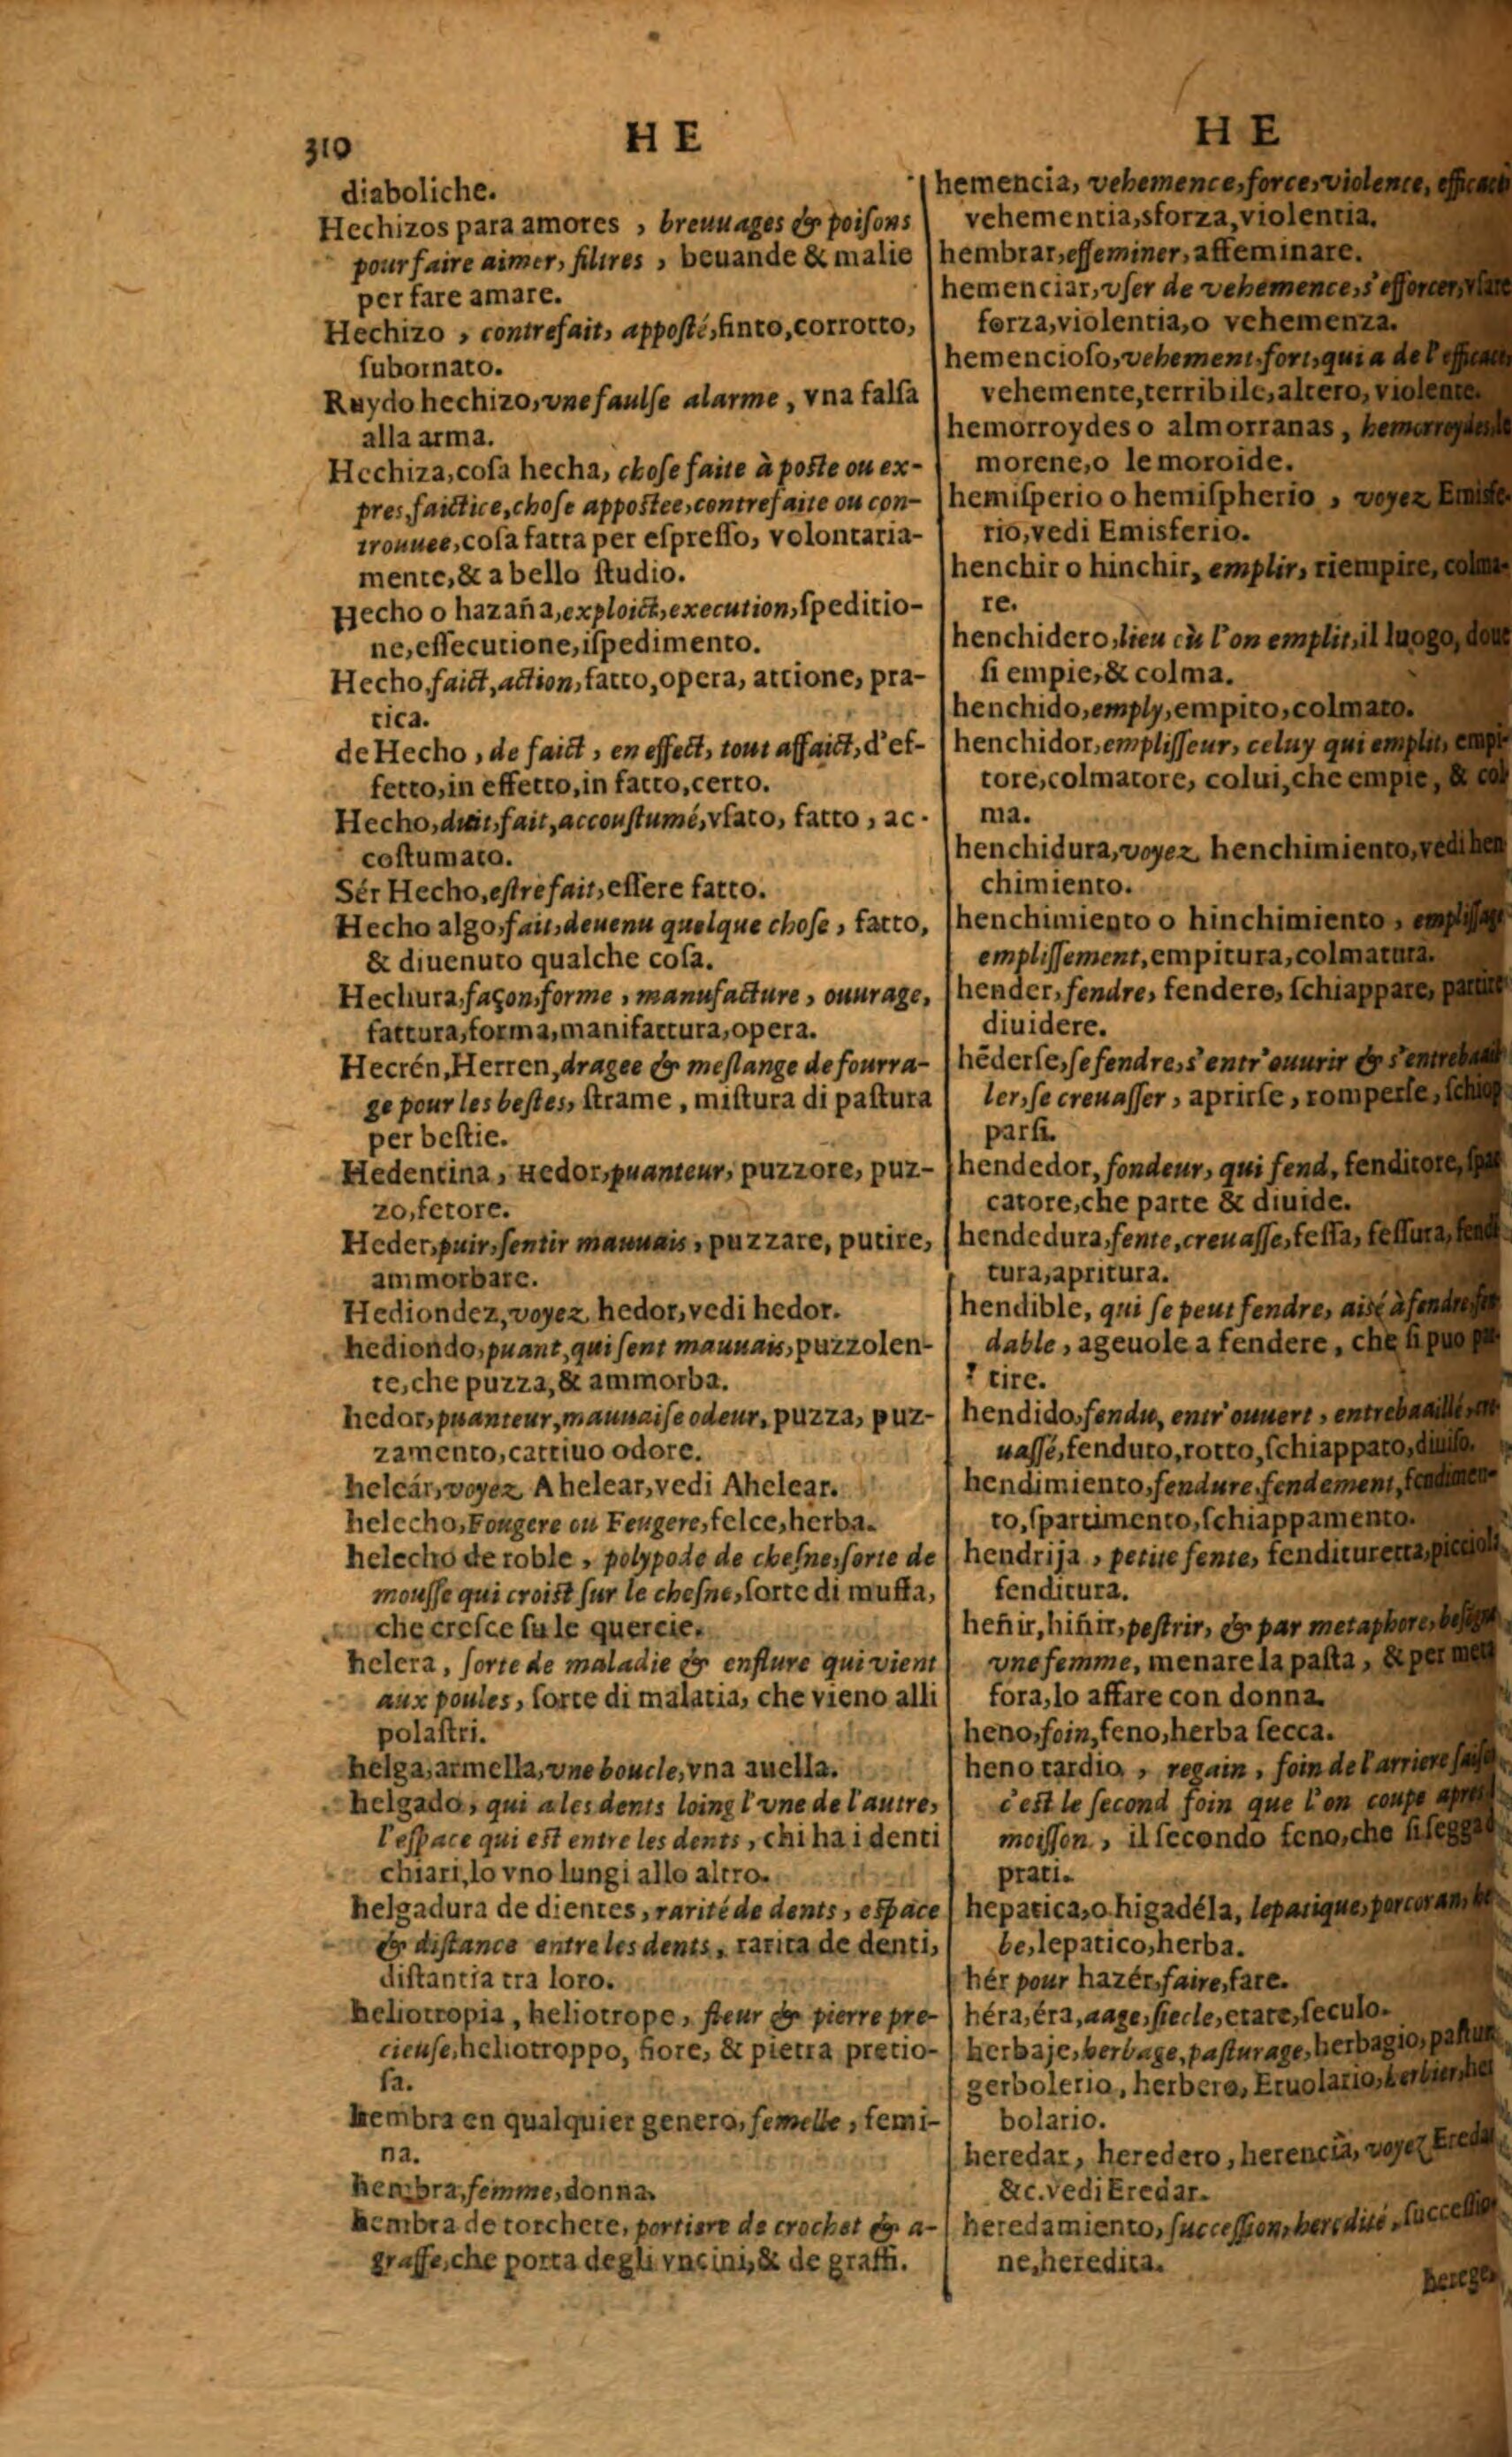 310
H E
diaboliche.
Hechizos para amores , breuuages & poiſons
pour faire aimer, filtres , beuande & malie
per fare amare.
Hechizo , contrefait, appoſté, finto, corrotto,
ſubornato.
Ruydo hechizo, vne faulſe alarme , vna falſa
alla arma.
Hechiza, coſa hecha, choſe faite à poſte ou ex-
pres, faictice, choſe appoſtee, contrefaite ou con-
trouuee, coſa fatta per eſpreſſo, volontaria-
mente, & a bello ſtudio.
Hecho o hazaña, exploict, execution, ſpeditio-
ne, eſſecutione, iſpedimento.
Hecho, faict, action, fatto, opera, attione, pra-
tica.
de Hecho , de faict , en effect, tout affaict, d'ef-
fetto, in effetto, in fatto, certo.
Hecho, duit, fait, accouſtumé, vſato, fatto , ac-
coſtumato.
Sér Hecho, eſtre fait, eſſere fatto.
Hecho algo, fait, deuenu quelque choſe , fatto,
& diuenuto qualche coſa.
Hechura, façon, forme , manufacture , ouurage,
fattura, forma, manifattura, opera.
Hecrén, Herren, dragee & meſlange de fourra-
ge pour les beſtes, ſtrame , miſtura di paſtura
per beſtie.
Hedentina , Hedor, puanteur, puzzore, puz-
zo, fetore.
Heder, puir, ſentir mauuais , puzzare, putire,
ammorbare.
Hediondez, voyez hedor, vedi hedor.
hediondo, puant, qui ſent mauuais, puzzolen-
te, che puzza, & ammorba.
hedor, puanteur, mauuaiſe odeur, puzza, puz-
zamento, cattiuo odore.
heleár, voyez Ahelear, vedi Ahelear.
helecho, Fougere ou Feugere, felce, herba.
helecho de roble , polypode de cheſne, ſorte de
mouſſe qui croiſt ſur le cheſne, ſorte di muffa,
che creſce ſu le quercie.
helera , ſorte de maladie & enflure qui vient
aux poules , ſorte di malatia, che vieno alli
polaſtri.
helga, armella, vne boucle, vna auella.
helgado , qui a les dents loing l'vne de l'autre,
l'eſpace qui eſt entre les dents , chi ha i denti
chiari, lo vno lungi allo altro.
helgadura de dientes , rarité de dents , eſpace
& diſtance entre les dents , rarita de denti,
diſtantia tra loro.
heliotropia , heliotrope , fleur & pierre pre-
cieuſe, heliotroppo, fiore, & pietra pretio-
ſa.
hembra en qualquier genero, femelle , femi-
na.
hembra, femme, donna.
hembra de torchete, portiere de crochet & a-
graffe, che porta degli vncini, & de graffi.
H E
hemencia, vehemence, force, violence,
vehementia, sforza, violentia.
hembrar, effeminer, affeminare.
hemenciar, vſer de vehemence, s'efforcer, vſare
forza, violentia, o vehemenza.
hemencioſo, vehement, fort, qui a de l'
vehemente, terribile, altero, violente.
hemorroydes o almorranas ,
morene, o le moroide.
hemiſperio o hemiſpherio , voyez Emisfe-
rio, vedi Emisferio.
henchir o hinchir, emplir, riempire, colma-
re.
henchidero, lieu où l'on emplit, il luogo, doue
ſi empie, & colma.
henchido, emply, empito, colmato.
henchidor, empliſſeur, celuy qui emplit, empi-
tore, colmatore, colui, che empie , & col
ma.
henchidura, voyez henchimiento, vedi hen
chimiento.
henchimiento o hinchimiento , empliſſage
empliſſement, empitura, colmatura.
hender, fendre, fendere, ſchiappare, partire
diuidere.
hẽderſe, ſe fendre, s'entr'ouurir &
ler, ſe creuaſſer , aprirſe , romperſe , ſchiop
parſi.
hendedor, fondeur, qui fend, fenditore,
catore, che parte & diuide.
hendedura, fente, creuaſſe, feſſa, feſſura, fendi
tura, apritura.
hendible, qui ſe peut fendre, aisé à fendre,
dable , ageuole a fendere , che ſi puo par-
tire.
hendido, fendu, entr'ouuert , entrebaaillé,
uaſſé, fenduto, rotto, ſchiappato, diuiſo.
hendimiento, fendure, fendement, fendimen-
to, ſpartimento, ſchiappamento.
hendrija , petite fente, fendituretta, picciola
fenditura.
heñir, hiñir, peſtrir, & par metaphore,
vne femme, menare la paſta , & per meta
fora, lo affare con donna.
heno, foin, feno, herba ſecca.
heno tardio , regain , foin de l'arriere
c'eſt le ſecond foin que l'on coupe apres
moiſſon , il ſecondo feno, che ſi
prati.
hepatica, o higadéla, lepatique,
be, lepatico, herba.
hér pour hazér, faire, fare.
héra, éra, aage, ſiecle, etate, ſeculo.
herbaje, herbage, paſturage, herbagio,
gerbolerio , herbero, Eruolario, herbier, her
bolario.
heredar, heredero , herencia, voyez Eredar
&c. vedi Eredar.
heredamiento, ſucceſſion, heredité, ſucceſſio
ne, heredita.
herege,